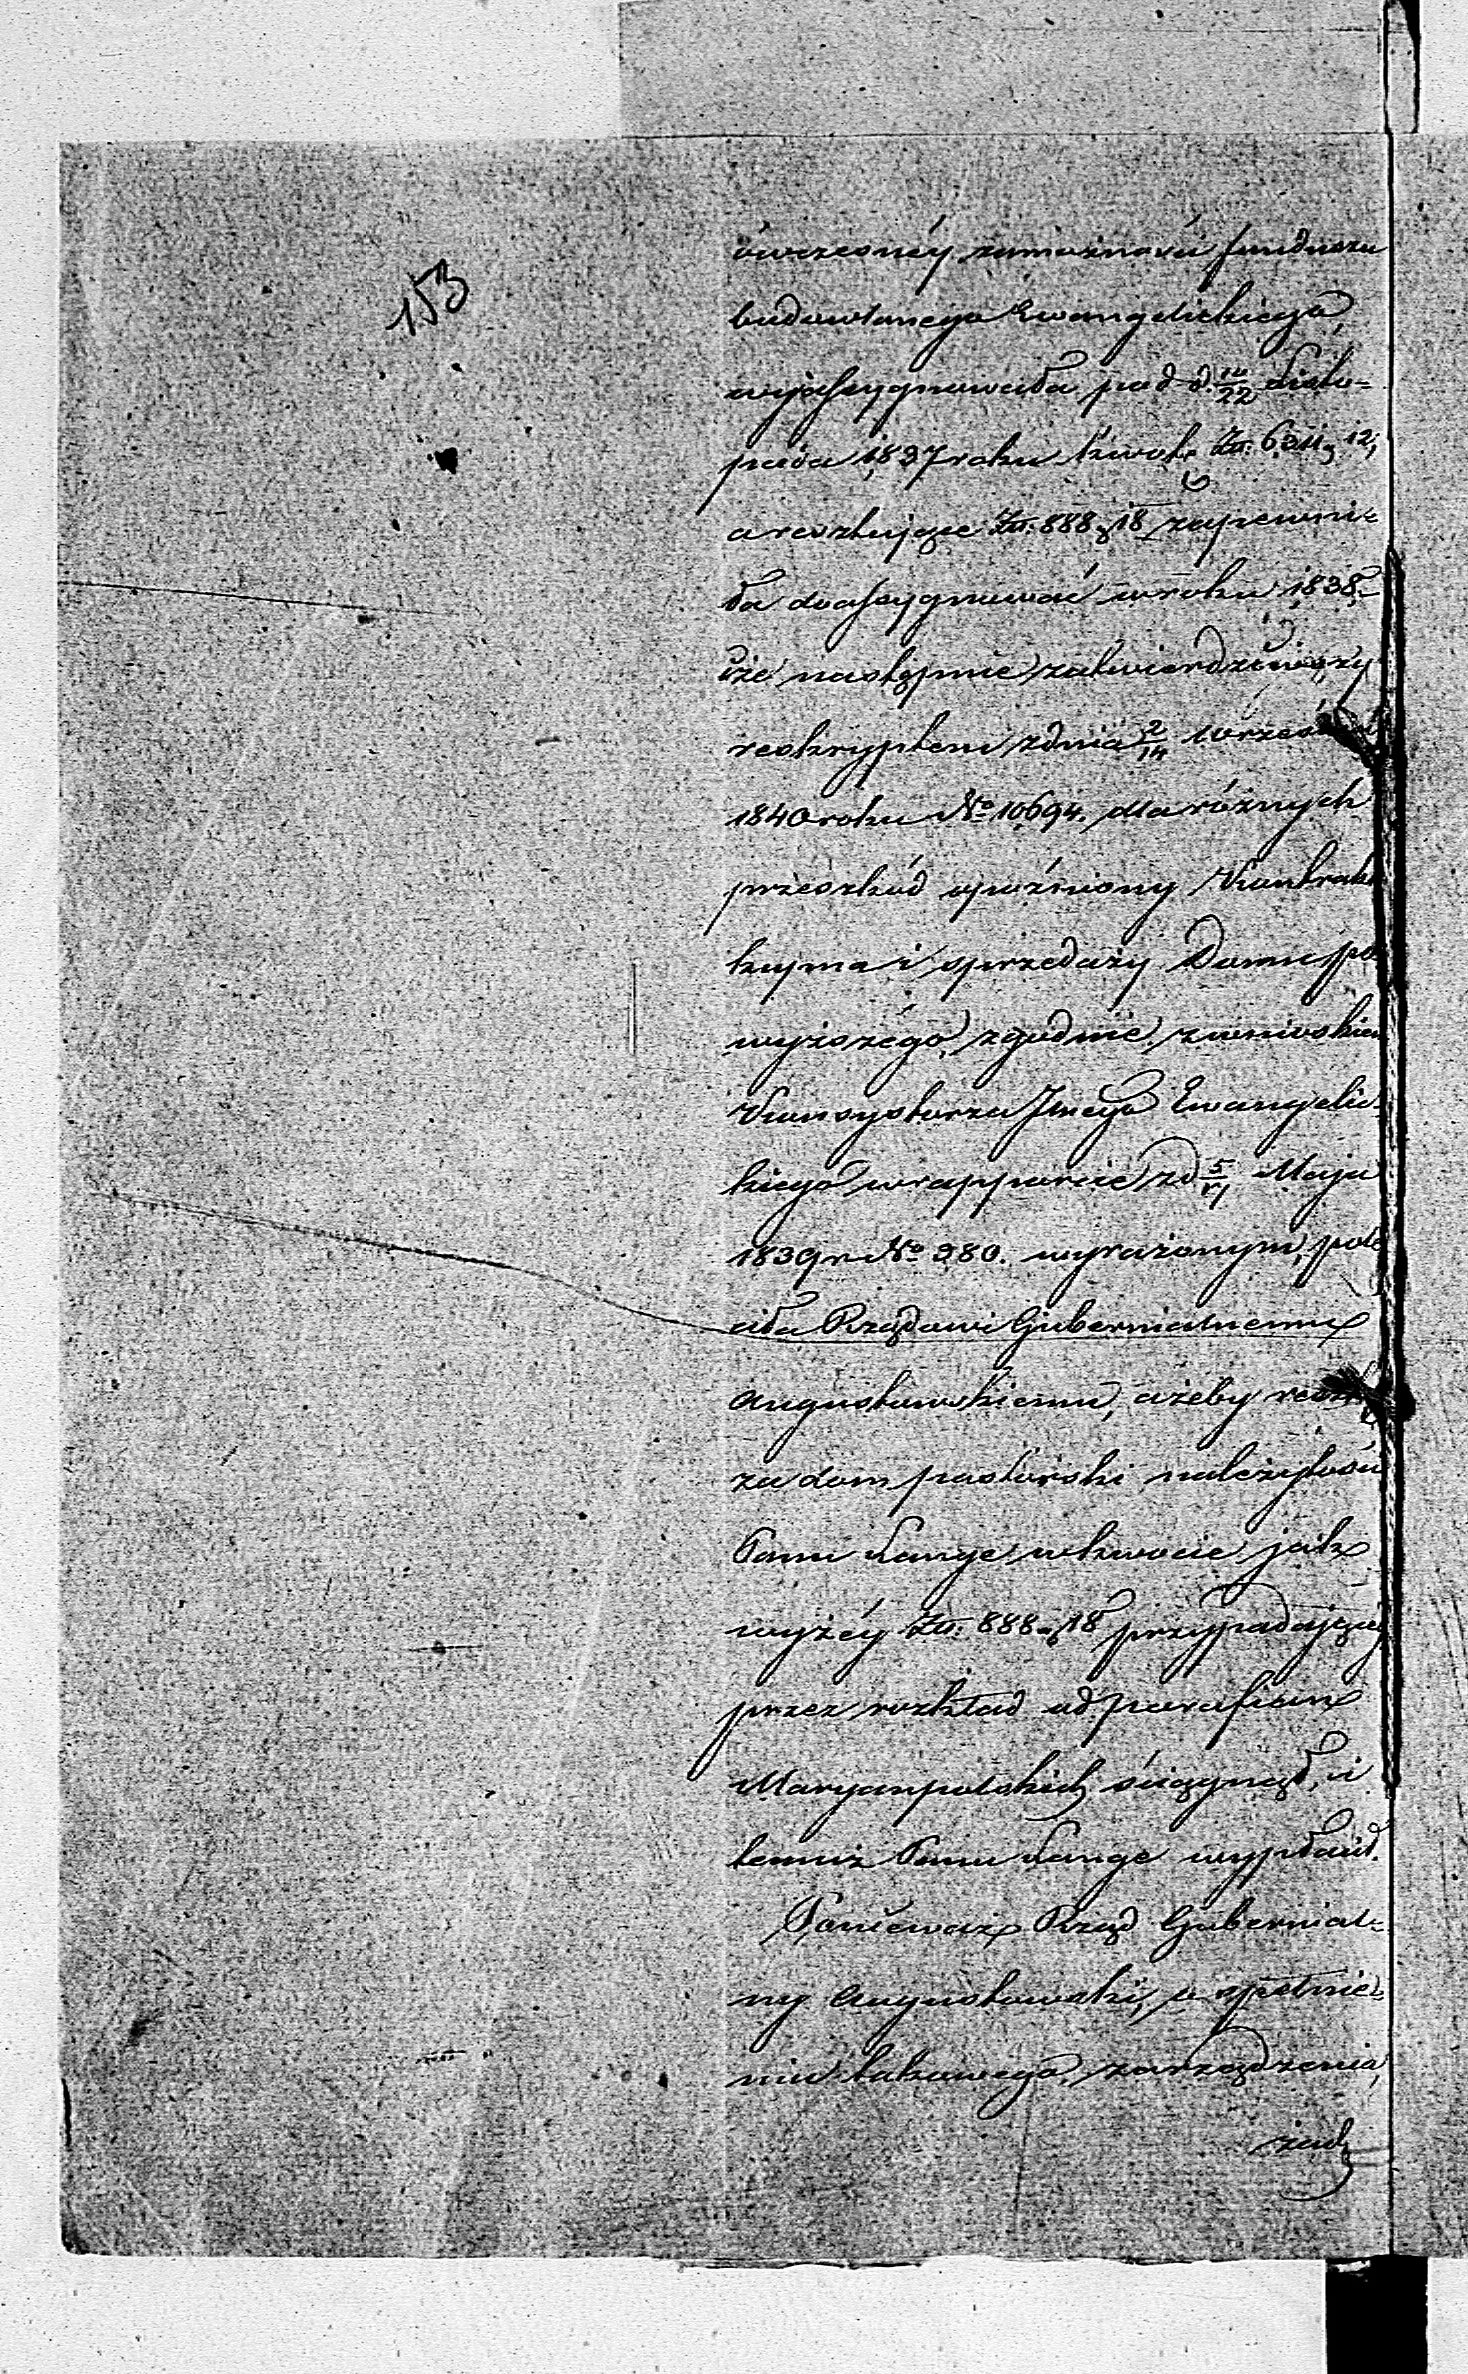 153
ówczesnéy zamożności funduszu
budowlanego Ewangelickiego,
wyassygnowała pod d 10/22 Listo-
pada 1837 roku kwotę Zł:
a resztujące Zł: 888 g 18 zapewni-
ła doassygnować w roku 1838.
że następnie zatwierdziwszy
reskryptem z dnia 2/14 Wrześ
1840 roku No 10694. dla różnych
przeszkód opóźniony Kontrakt
kupna i sprzedaży Domu po
wyższego, zgodnie z wnioskiem
Konsystorza Jlnego Ewangelic-
kiego w rapporcie z d 5/17 Maja
1839 r No 980. wyrażonym, pole
ciła Rządowi Gubernialnemu
Augustowskiemu, ażeby resztę
za dom pastorski należytości
Panu Lange w kwocie jak
wyżéy Zł: 888 g 18 przypadającéy
przez rozkład od parafian
Maryampolskich ściągnął, i
temuż Panu Lange wypłacił.
Ponieważ Rząd Gubernial-
ny Augustowski, o spełnie-
niu takowego zarządzenia,
żad